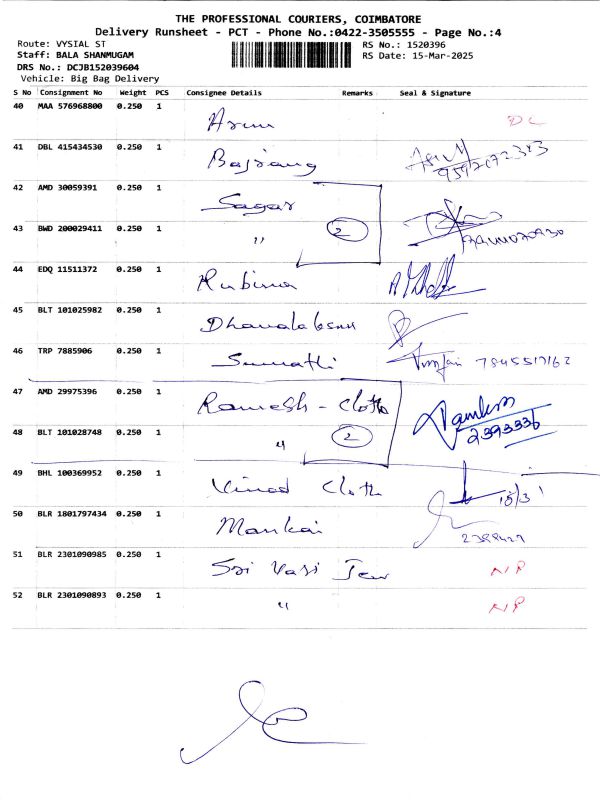 THE PROFESSIONAL COURIERS, COIMBATORE
Delivery Runsheet - PCT - Phone No.:0422-3505555 - Page No.:4
Route: VYSIAL ST
RS No.: 1520396
Staff: BALA SHANMUGAM
RS Date: 15-Mar-2025
DRS No.: DCJB152039604
Vehicle: Big Bag Delivery
S No Consignment No Weight PCS Consignee Details Remarks Seal & Signature
40 MAA 576968800 0.250 1 Arun DC
41 DBL 415434530 0.250 1 Bajrang
42 AMD 30059391 0.250 1 Sagar
43 BWD 200029411 0.250 1 " 2
44 EDQ 11511372 0.250 1 Rubina
45 BLT 101025982 0.250 1
46 TRP 7885906 0.250 1 Sumathi
47 AMD 29975396 0.250 1 Ramesh - Cloth
48 BLT 101028748 0.250 1 " 2 2393336
49 BHL 100369952 0.250 1 Vinod Cloth 15/3
50 BLR 1801797434 0.250 1 Mankai
51 BLR 2301090985 0.250 1 Sri Vasi Jew N/P
52 BLR 2301090893 0.250 1 " N/P